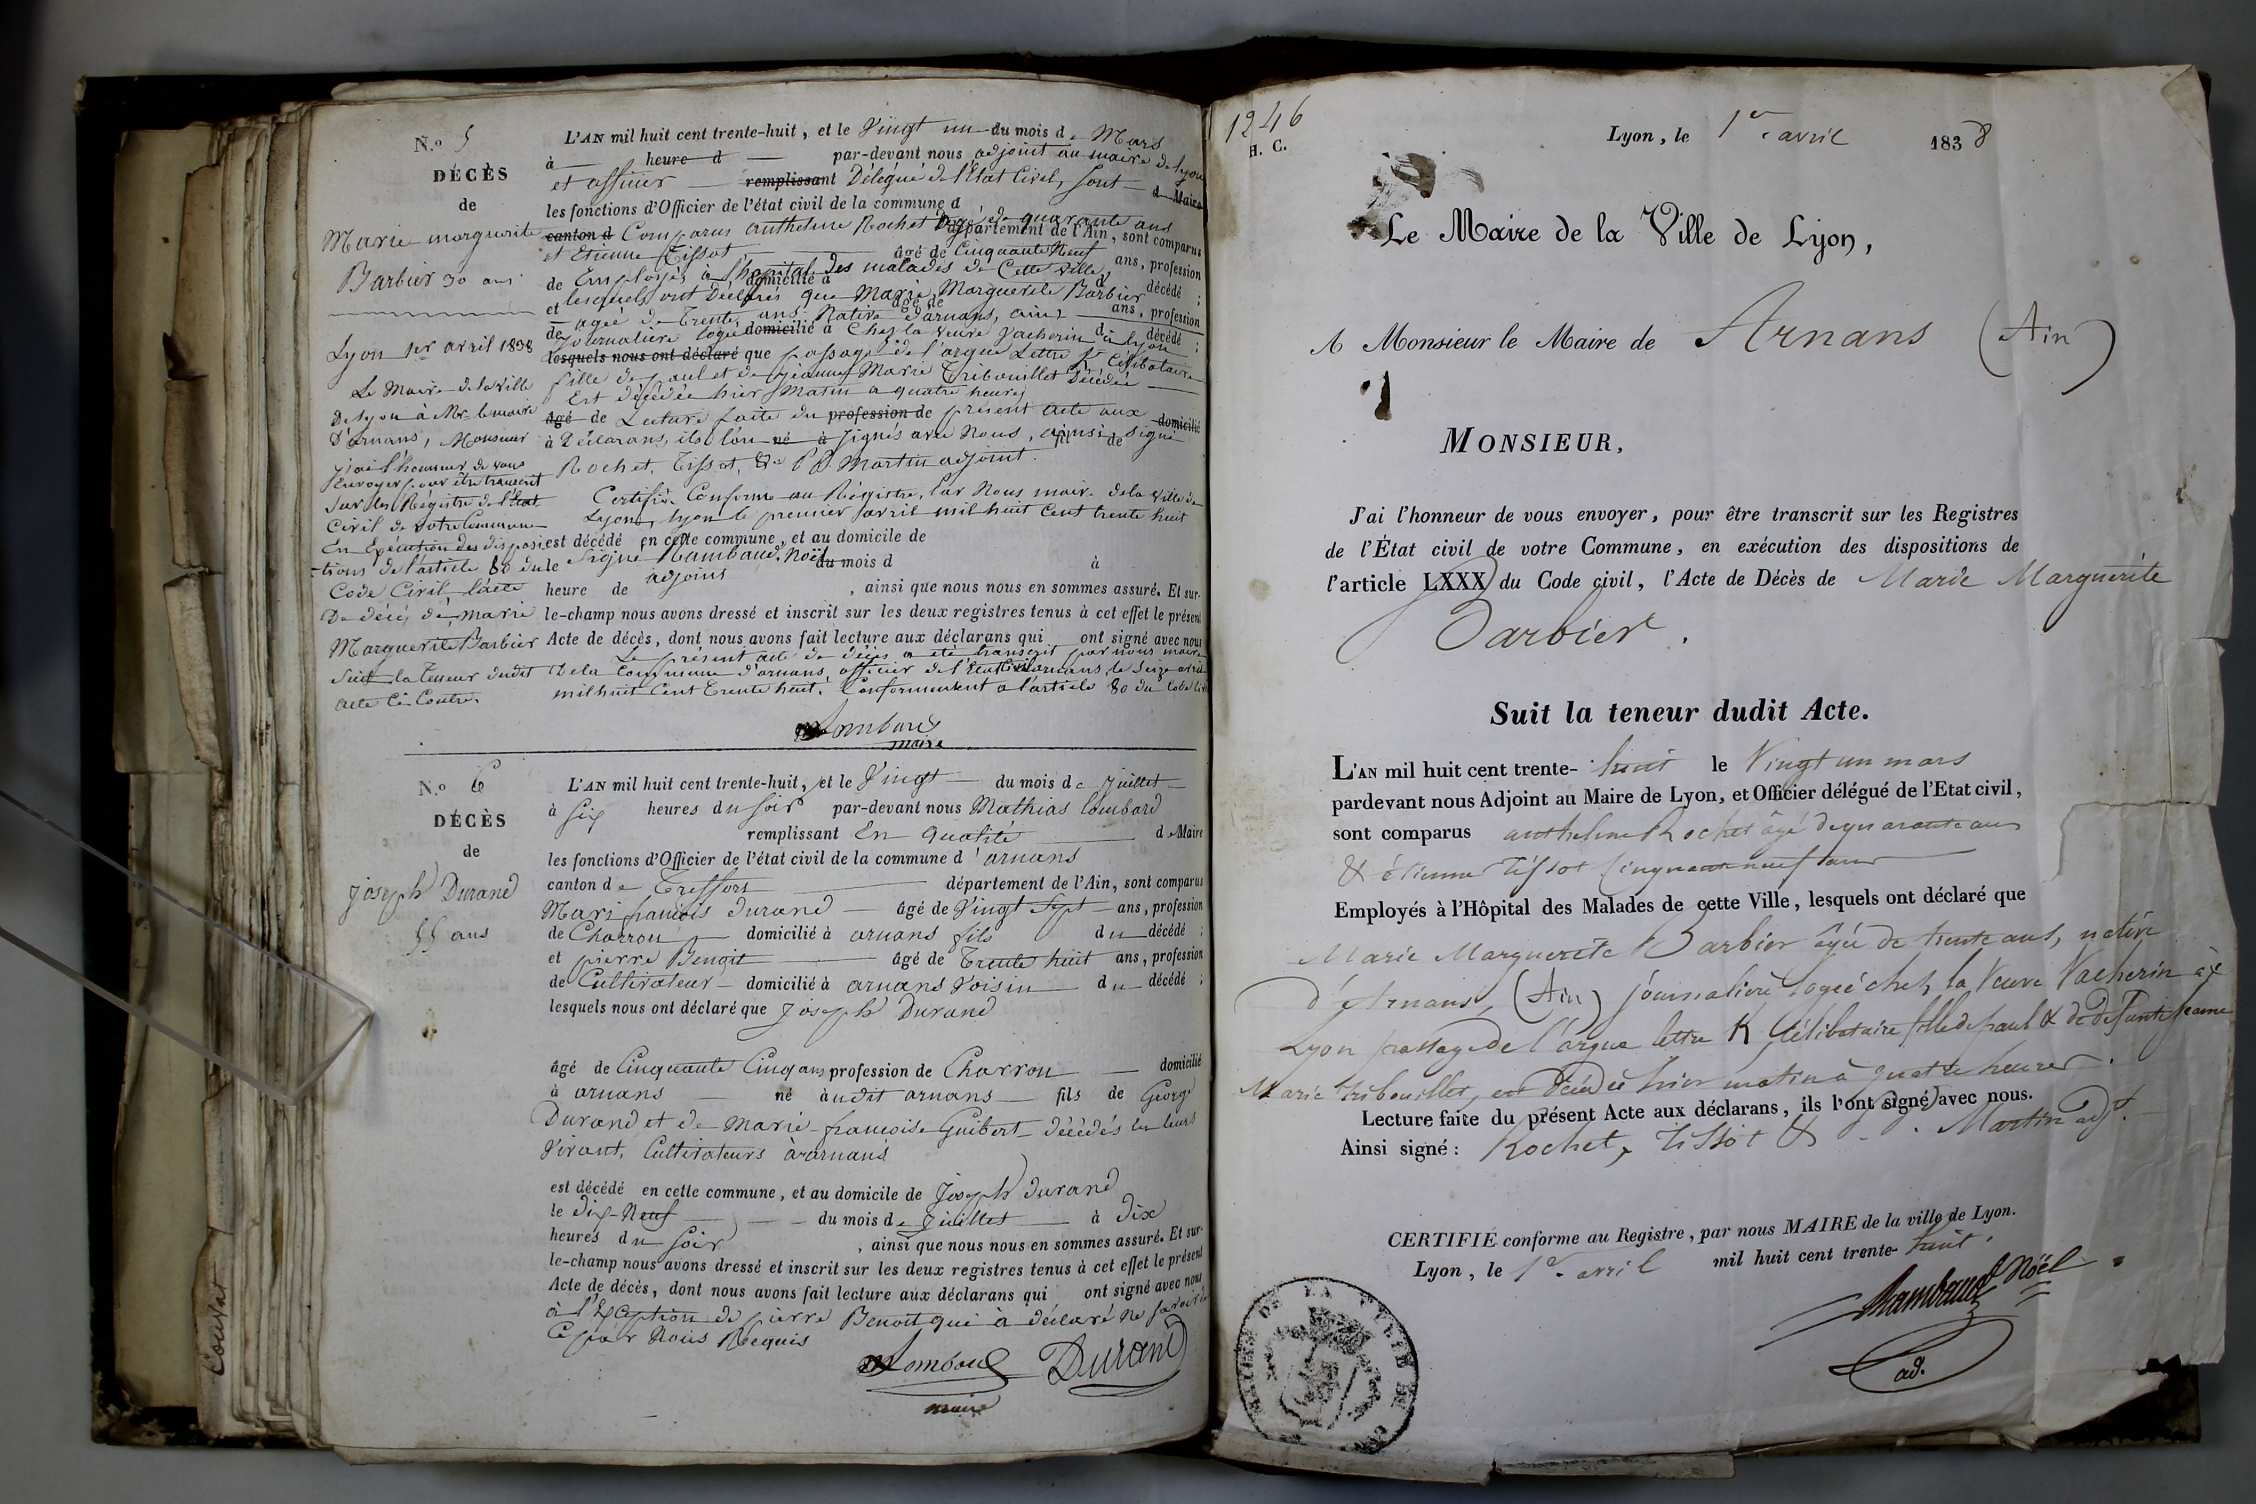 N.o 5
DÉCÈS
de
Marie marguerite
Barbier 30 ans
Lyon 1er avril 1838
Le Maire de la ville
De Lyon à Mr le maire
D'arnans, Monsieur
j'ai l'honneur de vous
Envoyer pour être transcrit
sur les Régistre de l'Etat
Civil de votre Commune
En Exécution des disposi
tions de l'article 80 du
Code Civil, l'acte
De décés de marie
Marguerite Barbier
Suit la teneur dudit
acte Ci Contre.
L'AN mil huit cent trente-huit, et le Vingt un du mois de Mars
à heure d par-devant nous adjoint au maire de Lyon
et officier remplissant Délégué de l'État Civil, sont d Maire
les fonctions d'Officier de l'état civil de la commune d
canton d Comparus anthelme Rochet âgé de quarante ans
département de l'Ain, sont comparus
et Etienne Tissot âgé de Cinquante Neuf ans, profession
de Employés à l'hopital des malades de Cette ville,
domicilié à d décédé ;
lesquels ont Déclarés que Marie Marguerite Barbier
et âgé de ans, profession
agée de Trente ans Native d'arnans, ain,
de journaliere logée domicilié à Chez la veuve Vacherin à Lyon d décédé ;
lesquels nous ont déclaré que passage de l'argue Lettre K Célibataire
fille de paul et de jeanne Marie Tribouillet Décédée
Est décédée hier Matin a quatre heures
âgé de Lecture faite du profession de présent acte aux domicilié
à Déclarans, ils l'on né à signés avec Nous, ainsi signé fil de
Rochet, Tissot, & P D. Martin adjoint.
Certifié Conforme au Régistre, Par Nous maire de la ville de
Lyon, lyon le premier avril mil huit cent trente huit
est décédé en cette commune, et au domicile de
le Signé Rambaud Noël du mois d à
adjoint
heure de , ainsi que nous nous en sommes assuré. Et sur-
le-champ nous avons dressé et inscrit sur les deux registres tenus à cet effet le présent
Acte de décès, dont nous avons fait lecture aux déclarans qui ont signé avec nous
Le présent acte de décés a été transcrit par nous maire
De la Commune d'arnans, officier de l'Etat Civil d'arnans, le seize avril
mil huit Cent Trente huit, Conformement a l'article 80 du Code Civil
Lombard
maire
N.o 6
DÉCÈS
de
joseph Durand
55 ans
L'AN mil huit cent trente-huit, et le Vingt du mois de juillet
à six heures du soir par-devant nous Mathias Lombard
remplissant En qualité de Maire
les fonctions d'Officier de l'état civil de la commune d'arnans
canton de Treffort département de l'Ain, sont comparus
Mari francois Durand âgé de Vingt Sept ans, profession
de Charron domicilié à arnans fils du décédé ;
et pierre Benoit âgé de Trente huit ans, profession
de Cultivateur domicilié à arnans Voisin du décédé ;
lesquels nous ont déclaré que Joseph Durand
âgé de Cinquante Cinq ans profession de Charron domicilié
à arnans né àudit arnans fils de George
Durand et de Marie francoise Guibert décédés en leurs
Vivant, Cultivateurs à arnans
est décédé en cette commune, et au domicile de Joseph Durand
le dix-Neuf du mois de juillet à dix
heures du soir , ainsi que nous nous en sommes assuré. Et sur-
le-champ nous avons dressé et inscrit sur les deux registres tenus à cet effet le présent
Acte de décès, dont nous avons fait lecture aux déclarans qui ont signé avec nous
à l'Exception de pierre Benoit qui à déclaré ne savoir
Ce par Nous Requis
Lombard Durand
maire
1246
H. C.
Lyon, le 1er avril 1838
Le Maire de la Ville de Lyon,
A Monsieur le Maire de Arnans (Ain)
MONSIEUR,
J'ai l'honneur de vous envoyer, pour être transcrit sur les Registres
de l'État civil de votre Commune, en exécution des dispositions de
l'article LXXX du Code civil, l'Acte de Décès de Marie Marguerite
Barbier.
Suit la teneur dudit Acte.
L'AN mil huit cent trente-huit le Vingt un mars
pardevant nous Adjoint au Maire de Lyon, et Officier délégué de l'Etat civil,
sont comparus anthelme Rochet âgé de quarante ans
& étienne Tissot Cinquante neuf ans
Employés à l'Hôpital des Malades de cette Ville, lesquels ont déclaré que
Marie Marguerite Barbier âgée de trente ans, native
d'Arnans, (Ain) journalière logée chez la Veuve Vacherin à
Lyon passage de l'argue lettre K Célibataire fille de paul & de défunte jeanne
Marie tribouillet, est décédée hier matin à quatre heures.
Lecture faite du présent Acte aux déclarans, ils l'ont signé avec nous.
Ainsi signé : Rochet, Tissot & Martin adjt.
CERTIFIÉ conforme au Registre, par nous MAIRE de la ville de Lyon.
Lyon, le 1er avril mil huit cent trente-huit.
Rambaud Noël
ad.
DE LA VILLE DE
Constat